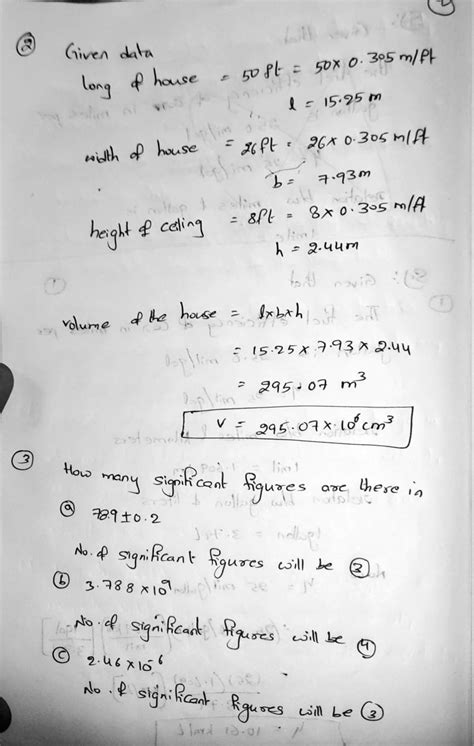 ②
Given data
long of house = 50 ft = 50 x 0.305 m/ft
l = 15.25 m
width of house = 26 ft = 26 x 0.305 m/ft
b = 7.93m
height of ceiling = 8ft = 8 x 0.305 m/ft
h = 2.44m
volume of the house = lxbxh
= 15.25 x 7.93 x 2.44
= 295.07 m³
V = 295.07 x 10⁶ cm³
③
How many significant figures are there in
ⓐ 78.9 ± 0.2
No. of significant figures will be ③
ⓑ 3.788 x 10⁹
No. of significant figures will be ④
ⓒ 2.46 x 10⁻⁶
No. of significant figures will be ③